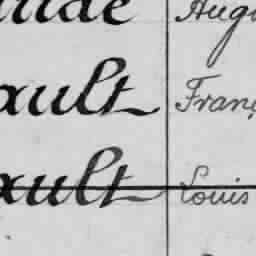 aude Augu
ault Franç
ault Louis